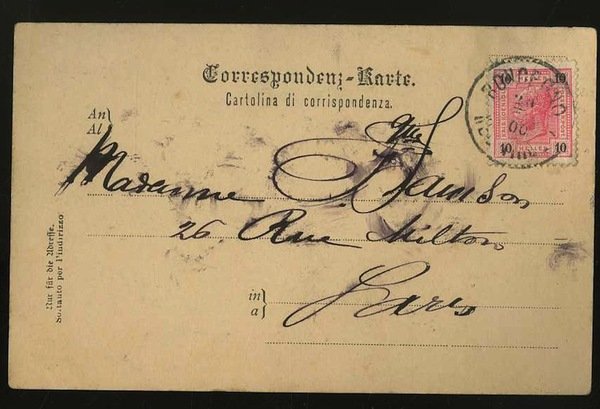 Correspondenz-Karte.
Cartolina di corrispondenza.
An
Al
Madame Samson
26 Rue Milton
in
a
Paris
Nur für die Adresse.
Soltanto per l'indirizzo
10 10
10 HELLER 10